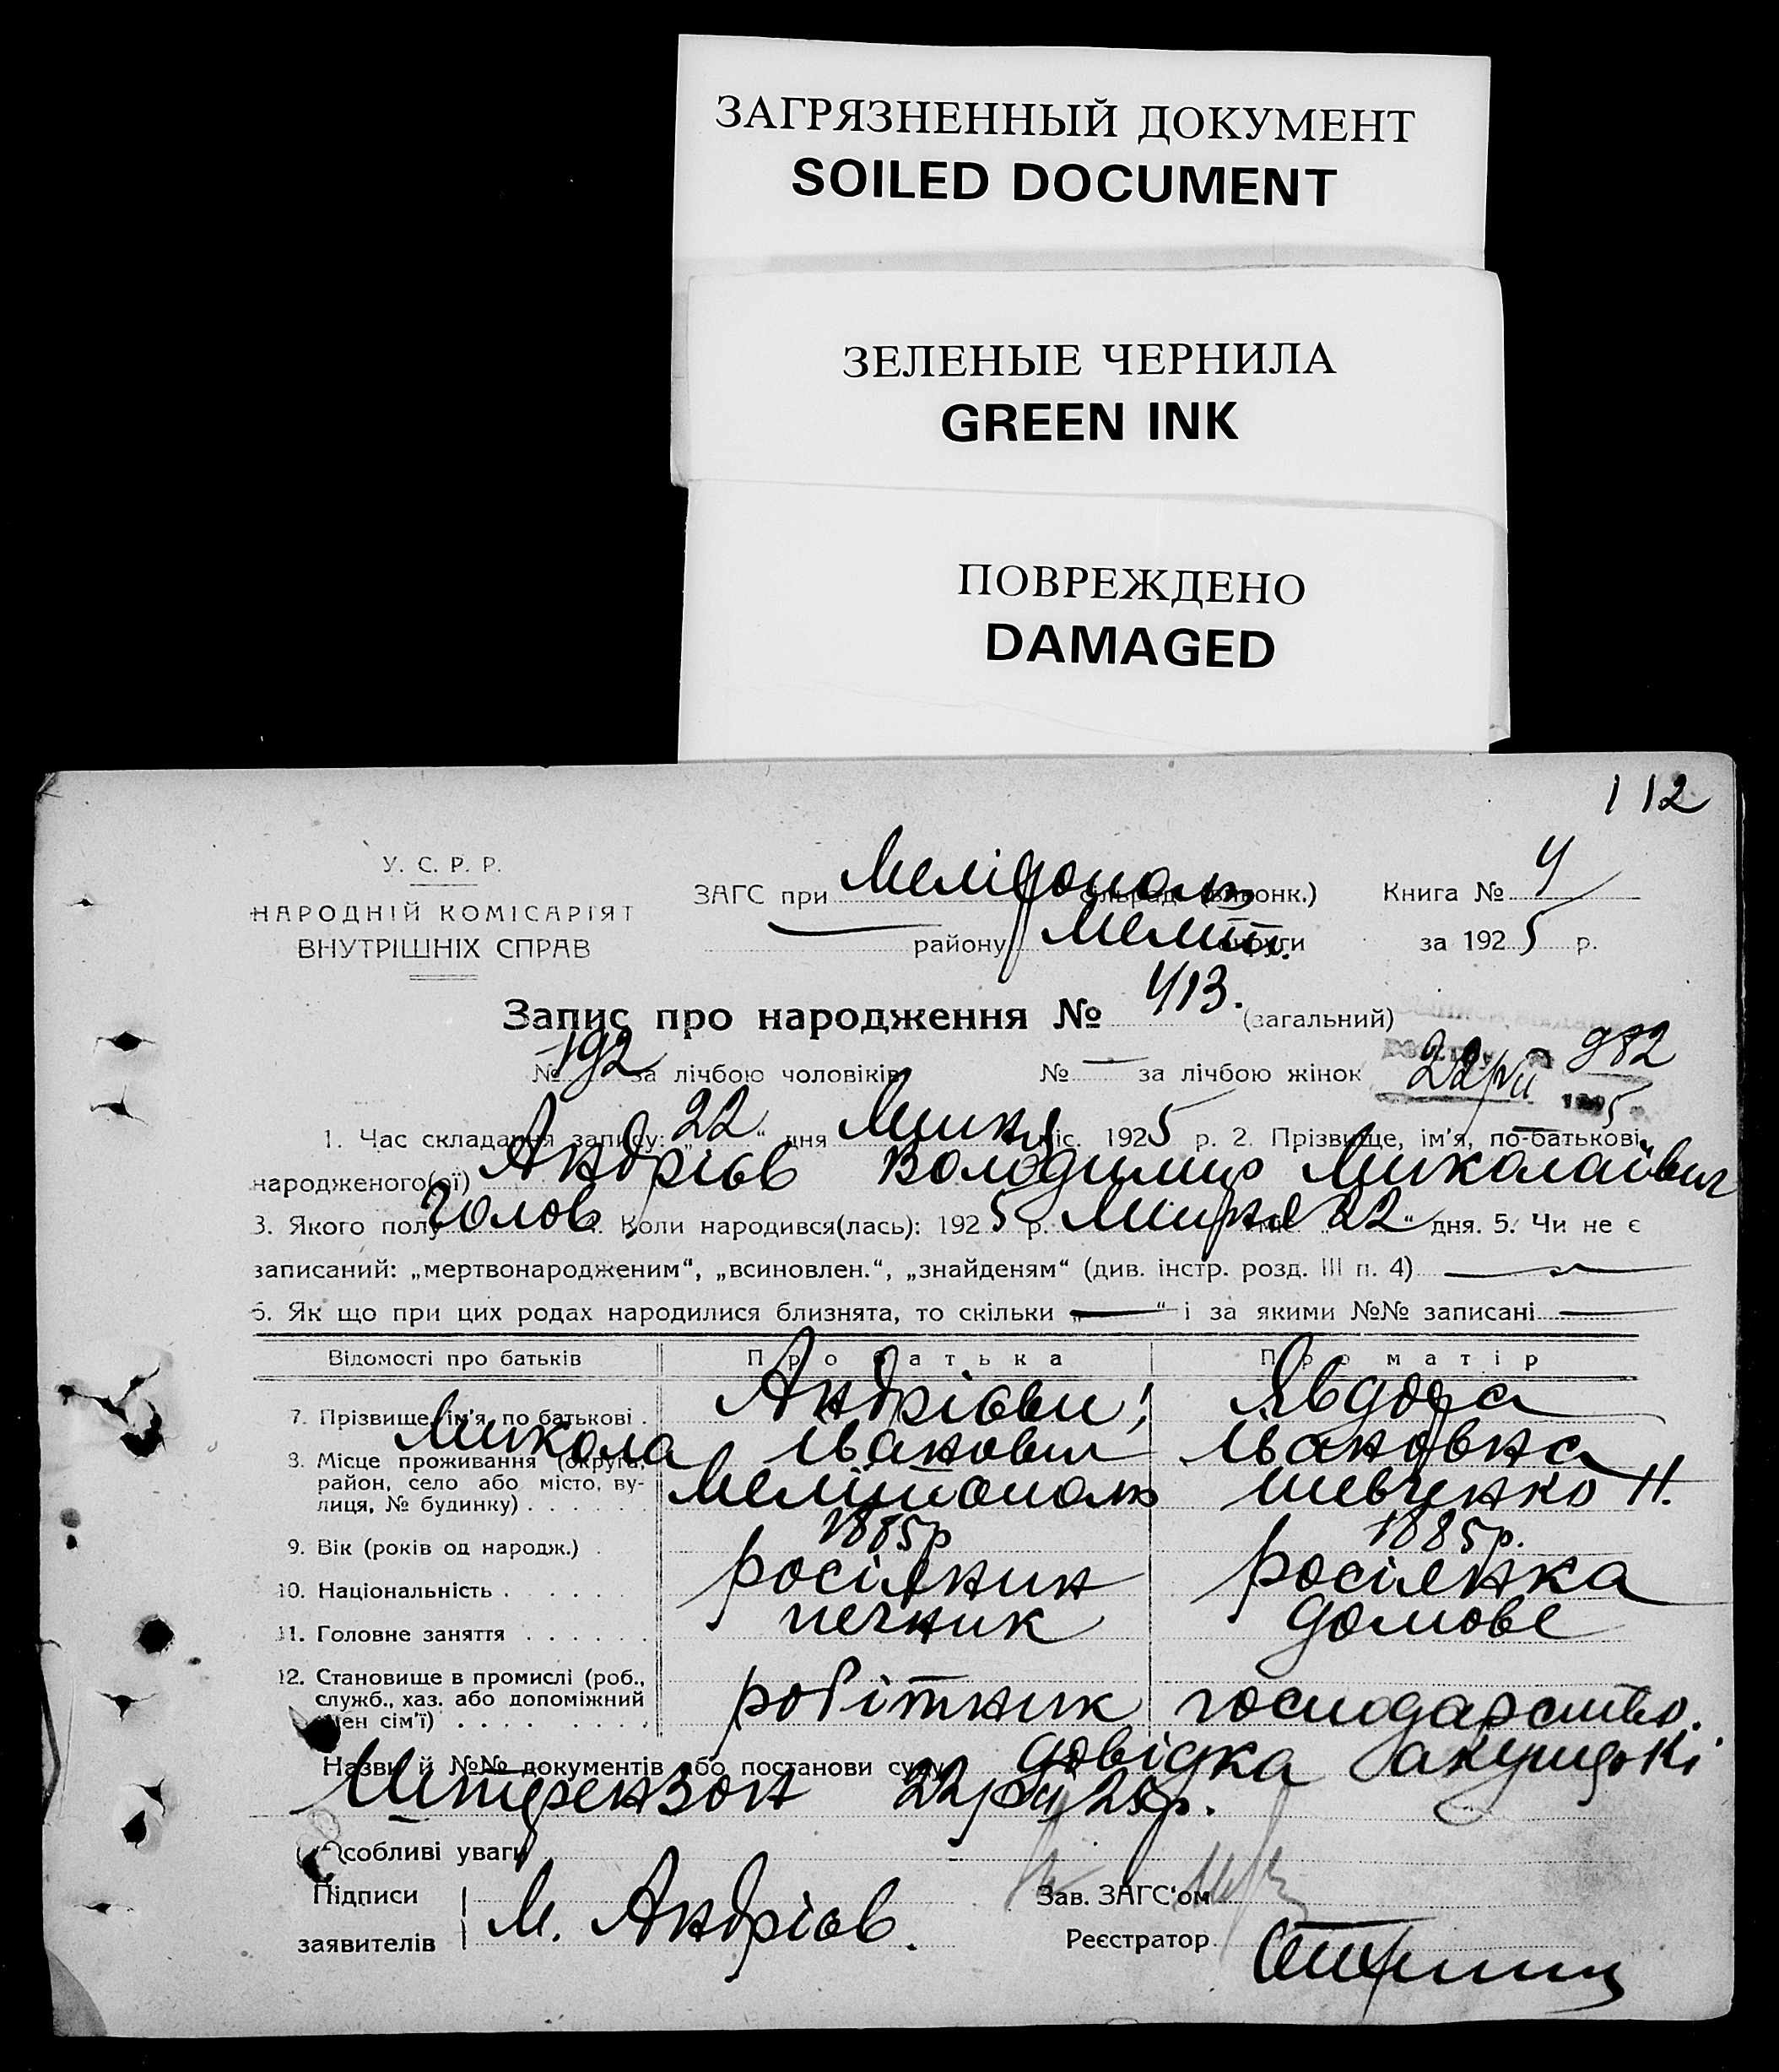 ЗАГРЯЗНЕННЫЙ ДОКУМЕНТ
SOILED DOCUMENT
ЗЕЛЕНЫЕ ЧЕРНИЛА
GREEN INK
ПОВРЕЖДЕНО
DAMAGED
112
У. С. Р. Р.
НАРОДНІЙ КОМІСАРІЯТ
ВНУТРІШНІХ СПРАВ
ЗАГС при Мелітополь Книга № 4
району Меліт. округи за 1925 р.
Запис про народження № 413. (загальний)
№ 192 за лічбою чоловіків № — за лічбою жінок 22/VII 982
1925
1. Час складання запису: „22“ дня Липня міс. 1925 р. 2. Прізвище, ім'я, по-батькові
народженого(ої) Андріів Володимир Миколаївич
3. Якого полу Чолов. 4. Коли народився(лась): 1925 р. 22“ дня. 5. Чи не є
записаний: „мертвонародженим“, „всиновлен.“, „знайденям“ (див. інстр. розд. III п. 4) —
6. Як що при цих родах народилися близнята, то скільки „—“ і за якими №№ записані —
Відомості про батьків Про батька Про матір
7. Прізвище, ім'я, по батькові . Явдоха
Микола Іванович Івановна
8. Місце проживання (округа, район, село або місто, вулиця, № будинку) . Мелітополь Шевченко 11.
9. Вік (років од народж.) . 1885р 1885р.
10. Національність . росіянин росіянка
11. Головне заняття . печник домове
12. Становище в промислі (роб., служб., хаз. або допоміжний член сім'ї) . робітник господарство.
Назви й №№ документів або постанови суду довідка акушерки
22/VII 25р.
Особливі уваги
Підписи
заявителів М. Андріів.
Зав. ЗАГС'ом
Реєстратор